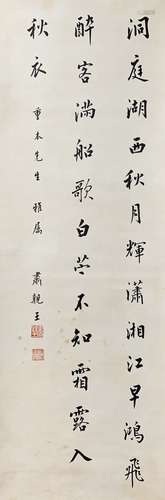 洞庭湖西秋月輝瀟湘江早鴻飛
醉客滿船歌白苧不知霜露入
秋衣
重本先生雅属
肅親王